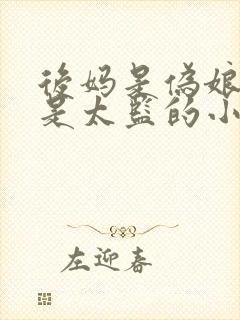 後妈是偽娘
是太監的小
左迎春